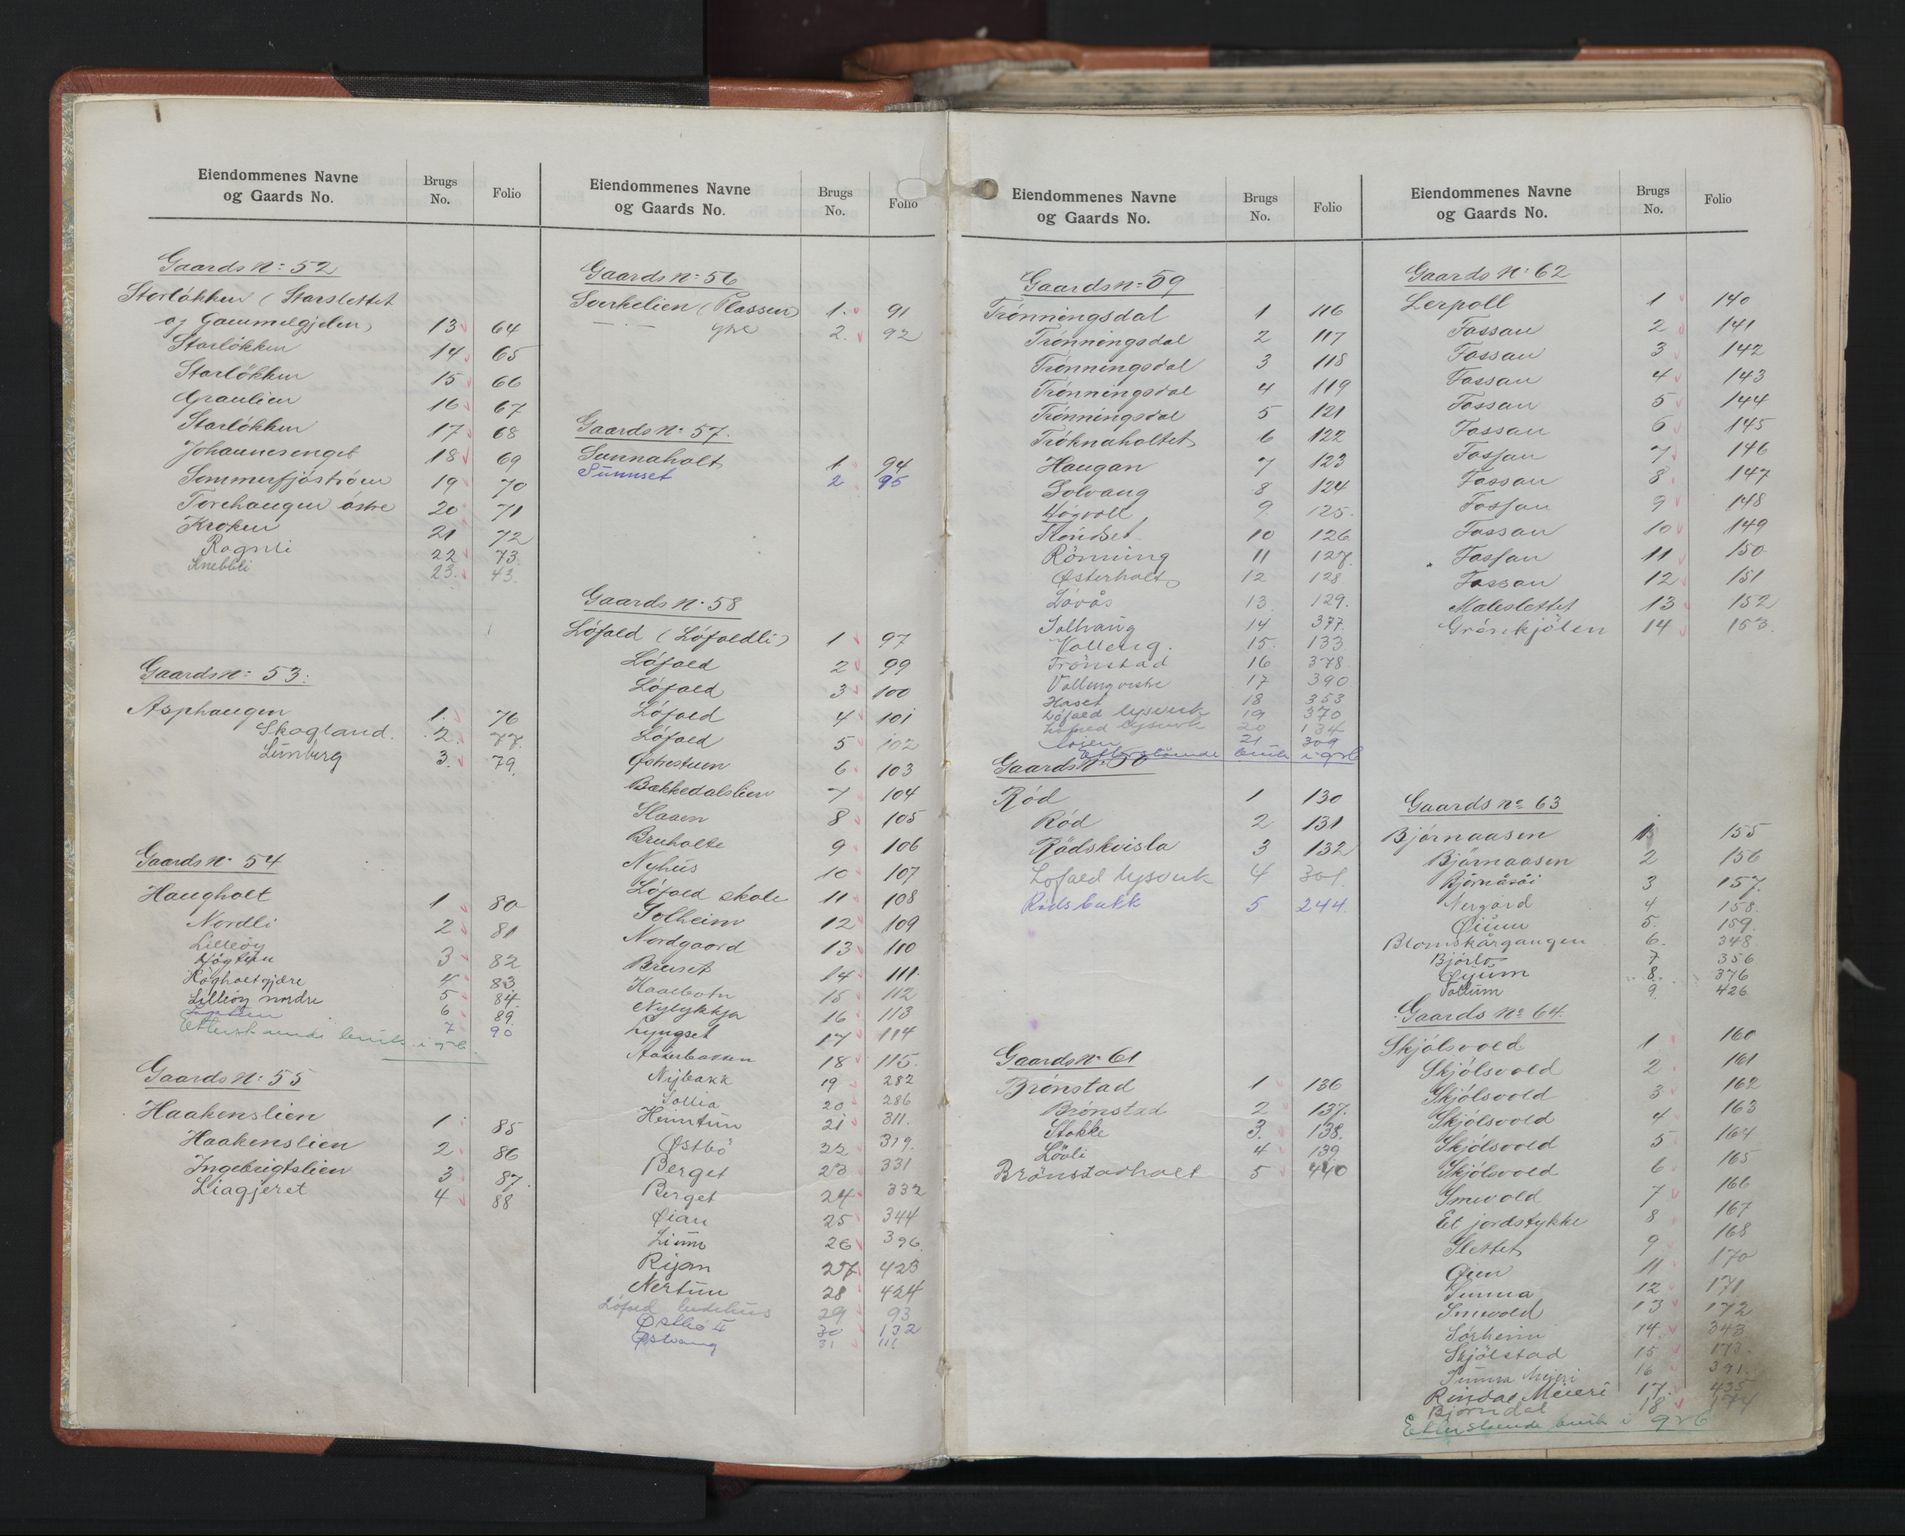 Eiendommenes Navne og Gaards No. Brugs No. Folio
Gaards No: 52
Storløkken (Storslettet
og Gammelgjelen) 13 64
Storløkken 14 65
Storløkken 15 66
Graulien 16 67
Storløkken 17 68
Johannesenget 18 69
Sommerfjøstrøen 19 70
Torehaugen østre 20 71
Kroken 21 72
Rognli 22 73
Knebbli 23. 43.
Gaards No: 53.
Asphaugen 1. 76
Skogland. 2. 77.
Lunberg 3. 79.
Gaards No 54
Haugholt 1 80
Nordli 2 81
Lilleøy
Høgtun 3 82
Høgholtgjære 4 83
Lilleøy nordre 5 84
6 89.
7 90
Etterstående bruk i grb.
Gaards No: 55
Haakenslien 1 85
Haakenslien 2 86
Ingebrigtslien 3 87.
Liagjeret 4 88
Eiendommenes Navne og Gaards No. Brugs No. Folio
Gaards No: 56
Surkelien (Plassen) 1. 91
— · — yte 2. 92
Gaards No: 57.
Sunnaholt 1 94
Sunnset 2 95
Gaards No. 58
Løfald (Løfaldli) 1 97
Løfald 2 99
Løfald 3 100
Løfald 4 101
Løfald 5 102
Østistuen 6 103
Bakkedalslien 7 104
Slaaen 8 105
Bruholte 9 106
Nyhus 10 107
Løfald skole 11 108
Solheim 12 109
Nordgaard 13 110
Bruset 14 111
Haalbotn 15 112
Nylykkja 16 113
Lyngset 17 114
Aakerbakken 18 115.
Nybakk 19 282
Sollia 20 286
Heimtun 21 311.
Østbø 22 319.
Berget 23 331
Berget 24 332
Øian 25 344
Limo 26 396.
Rijan 27 423
Nertun 28 424
Løfald bedehus 29 93
Østbø II 30 132
Østvang 31 111
Eiendommenes Navne og Gaards No. Brugs No. Folio
Gaards No: 59
Trønningsdal 1 116
Trønningsdal 2 117
Trønningsdal 3 118
Trønningsdal 4 119
Trønningsdal 5 121
Trøknaholtet 6 122
Haugan 7 123
Solvang 8 124
Høgvoll 9 125.
Trøndset 10 126
Rønning 11 127.
Østerholt 12 128
Løvås 13. 129.
Solhaug 14 377
Volleng. 15. 133
Trønstad 16 378
Volleng vestre 17 390
Haset 18 353
Løfald lysverk 19 370
Løfald lysverk 20 134
Moien 21 309
Etterstående bruk i grb
Gaards No. 60
Rød 1 130
Rød 2 131
Rødskvisla 3 132
Løfald lysverk 4 301.
Rødsbakk 5 244.
Gaards No. 61
Brønstad 1 136
Brønstad 2 137.
Stokke 3. 138.
Løvli 4 139
Brønstadholt 5 440
Eiendommenes Navne og Gaards No. Brugs No. Folio
Gaards No. 62
Lerpoll 1 140
Fossan 2 141
Fossan 3 142
Fossan 4 143
Fossan 5 144
Fossan 6 145
Fossan 7 146
Fossan 8 147
Fossan 9 148
Fossan 10 149
Fossan 11 150
Fossan 12 151
Maleslettet 13 152
Grønkjølen 14 153.
Gaards No 63
Bjørnaasen 1 155
Bjørnaasen 2 156
Bjørnåsøi 3 157.
Nergard 4 158.
Øium 5. 159.
Blomskårgangen 6. 348
Bjørlo 7 356
Øyum 8. 376
Vollum 9. 426
Gaards No 64.
Skjølsvold 1 160
Skjølsvold 2 161
Skjølsvold 3 162
Skjølsvold 4 163
Skjølsvold 5 164
Skjølsvold 6 165
Smevold 7 166
Et jordstykke 8 167
Slettet 9 168
Øien 11 170
Sunna 12 171
Smevold 13 172
Sørheim 14. 343
Skjølstad 15 173.
Sunna Meieri 16 391.
Rindal Meieri 17. 435
Bjørndal 18 174
Etterstående bruk i grb